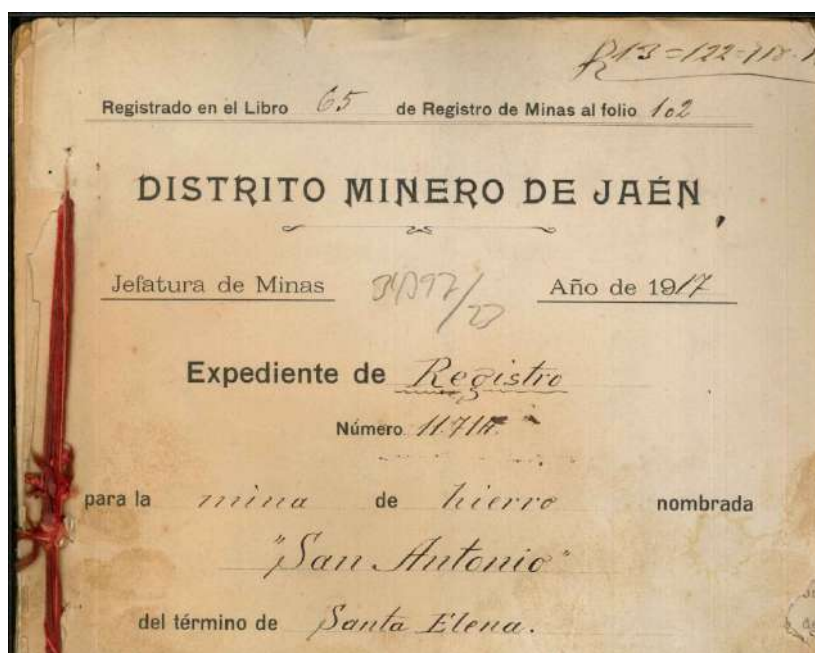 Registrado en el Libro 65 de Registro de Minas al folio 102
DISTRITO MINERO DE JAÉN
Jefatura de Minas
Año de 1917
Expediente de Registro
Número
para la mina de hierro nombrada
"San Antonio"
del término de Santa Elena.